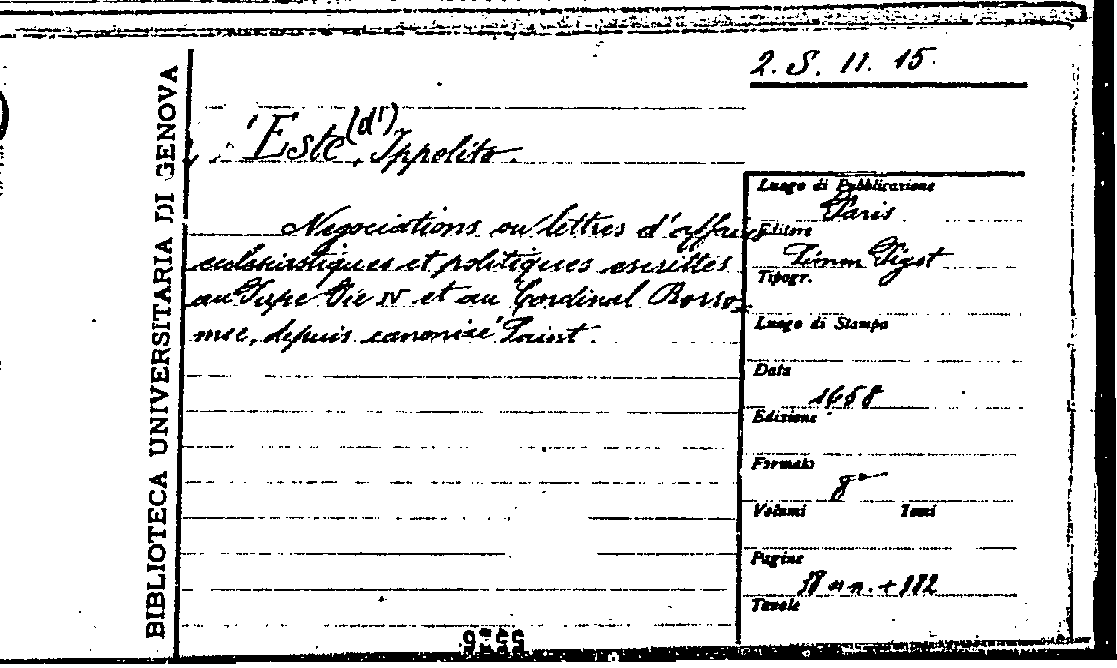 2. S. 11. 15.
BIBLIOTECA UNIVERSITARIA DI GENOVA
Este (d'), Ippolito.
Negociations ou lettres d'affaires
ecclesiastiques et politiques escrittes
au Pape Pie IV et au Cordinal Borro-
mee, depuis canonisé Saint.
Luogo di Pubblicazione
Paris
Editore
Simon Piget
Tipogr.
Luogo di Stampa
Data
1658
Edizione
Formato
8°
Volumi Tomi
Pagine
18 nn. +
Tavole